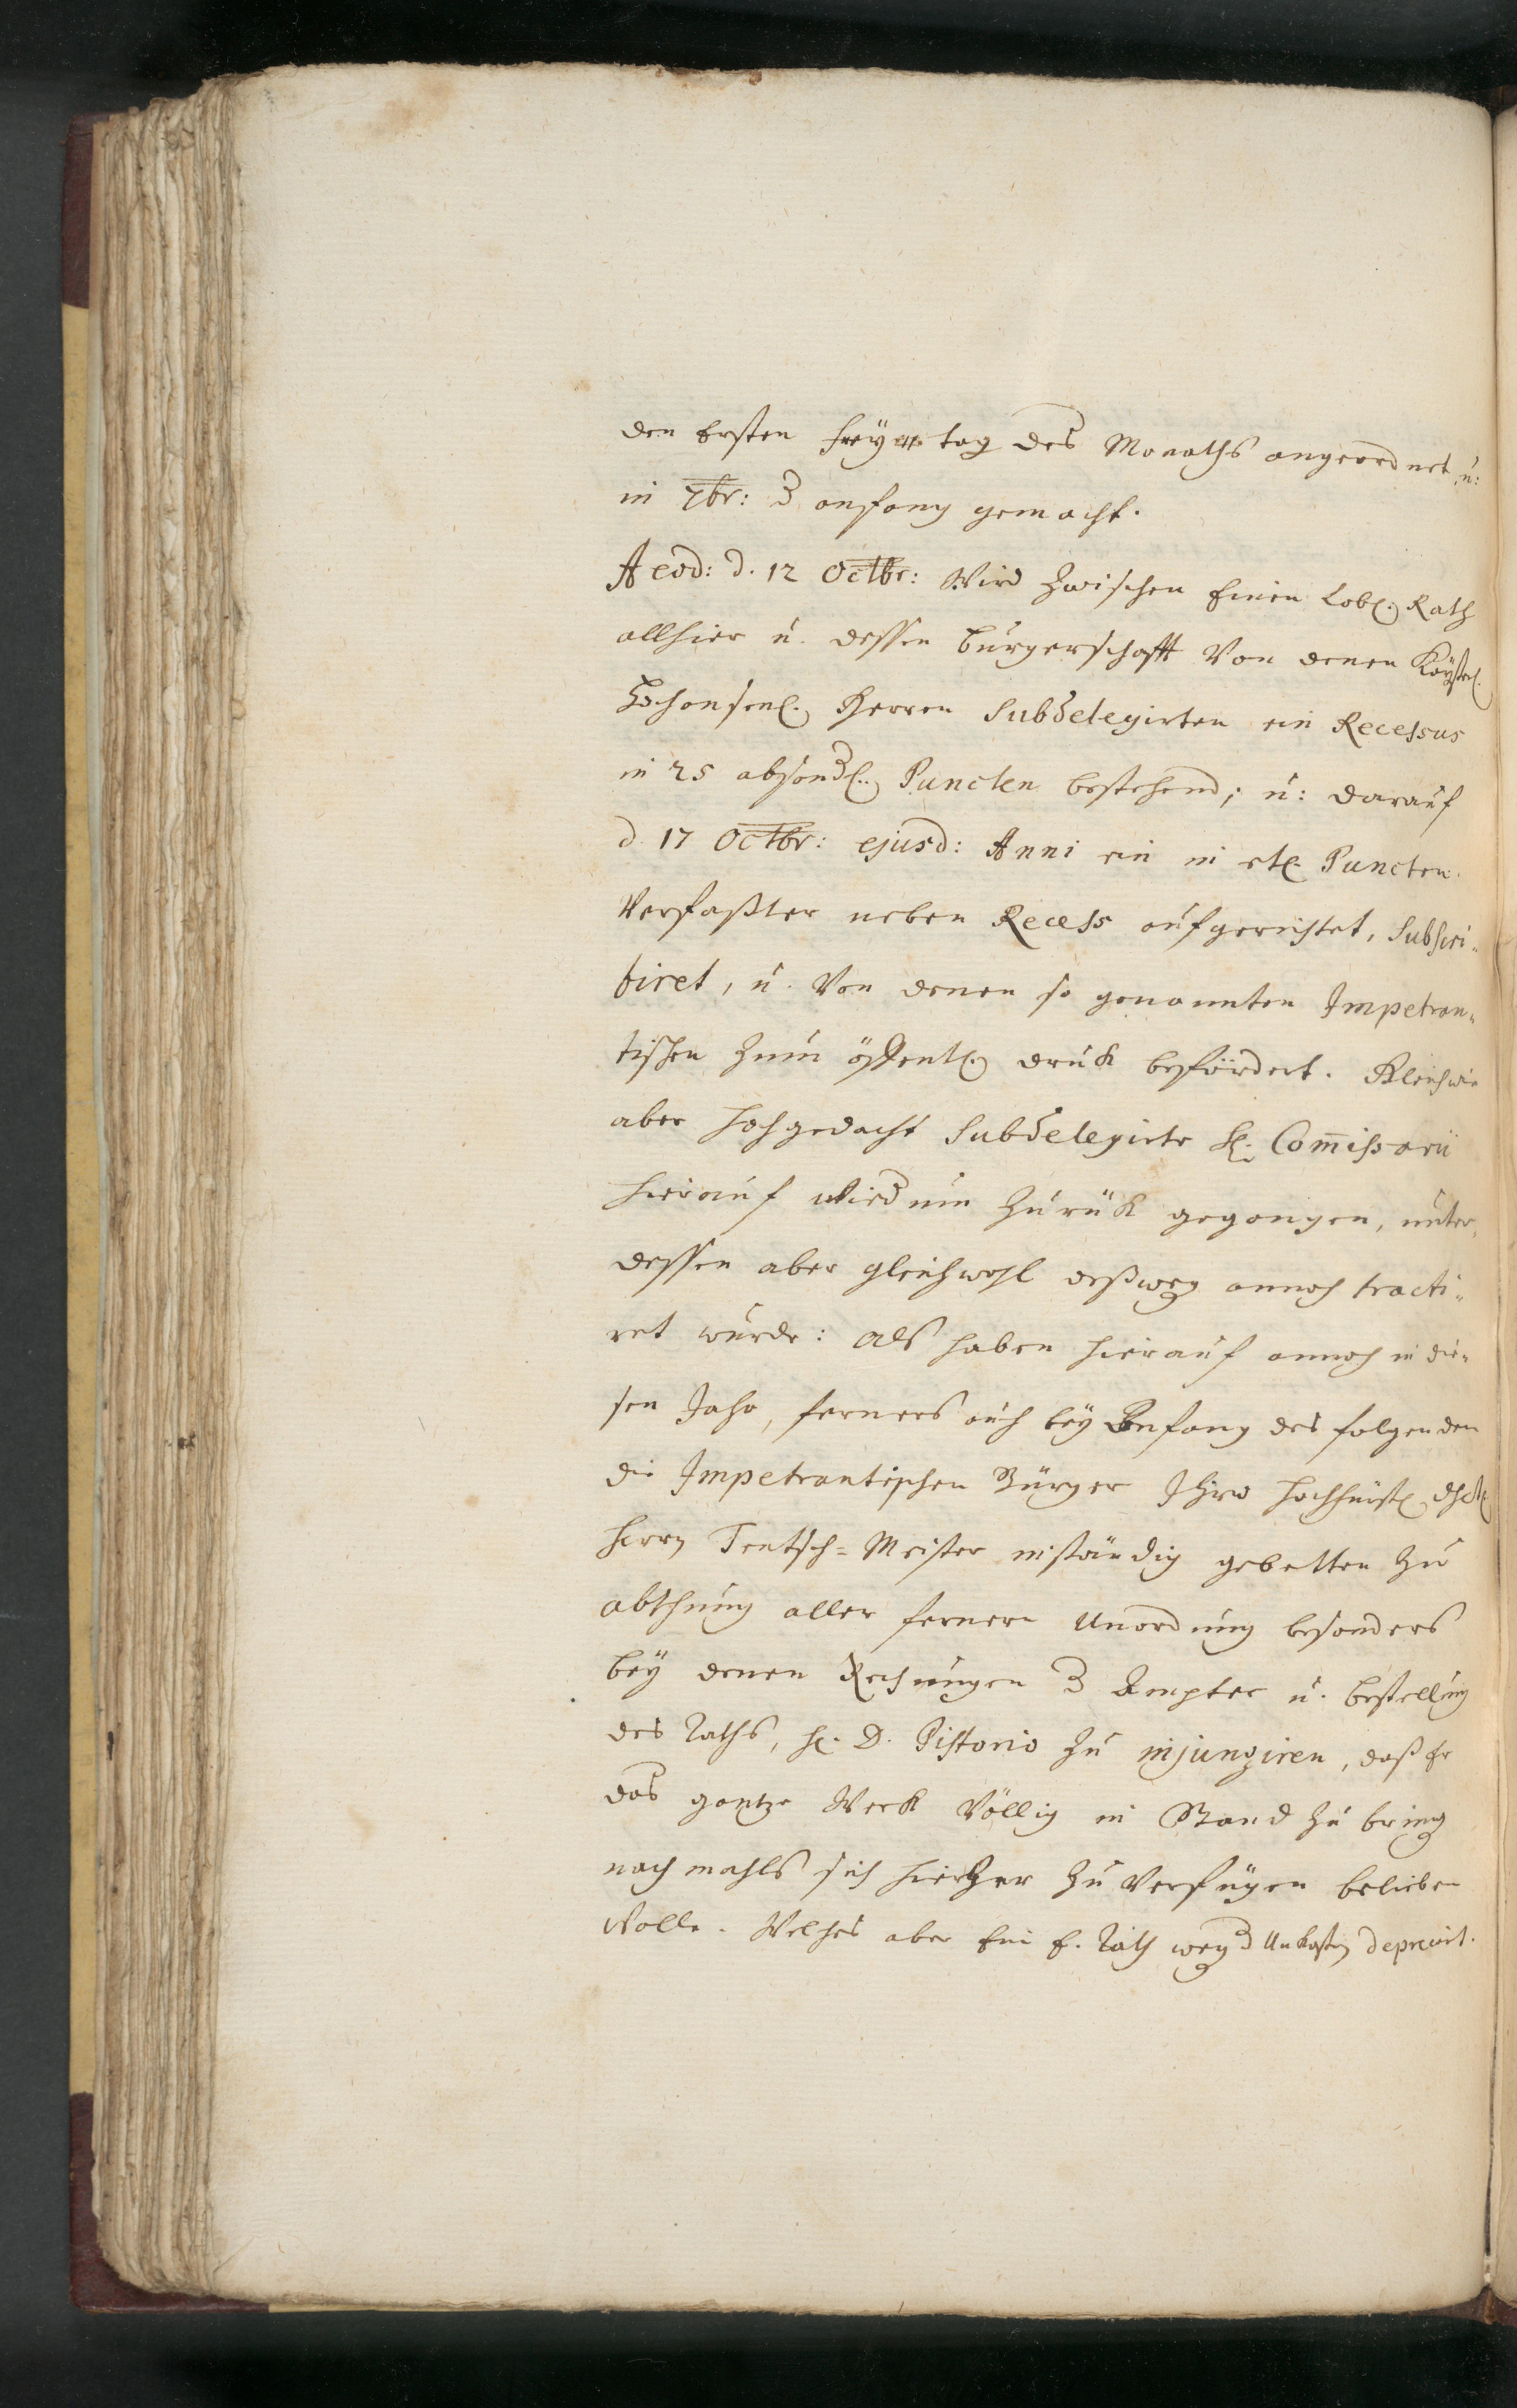 den Ersten Frey tag des Monaths angeordnet u:
in 7br: d anfang gemacht.
A eod: d. 12 Octbr: Wird zwischen Einen Lobl. Rath
allhier u. dessen burgerschafft Von denen Kaÿserl.
Herren Subdelegirten ein Recessus
in 25 absondl. Puncten bestehend; u: darauf
d. 17 Octbr: ejusd: Anni ein in etl. Puncten
Verfaßter neben Recess aufgerichtet, Subscri-
biret, u. Von denen so genannten Impetran-
tischen zum öffentl. druck befördert. Gleichwie
aber hochgedacht Subdelegirte H. Com̄issarii
hierauf wied um zurück gegangen, unter-
dessen aber gleichwohl deßweg annoch tracti-
ret wurde: Als haben hierauf annoch in die-
sen Jahr, ferners auch beÿ Anfang des folgenden
die Impetrantischen Bürger Ihro Hochfürstl. dhl.
Herrn Teutsch-Meister inständig gebetten zu
abthuung aller fernern Unordnung besonders
beÿ denen Rechnungen d Aempter u. bestellung
des Raths, H. D. Pistorio zu injungiren, daß Er
das gantze Werck Völlig in Stand zu bring
nach mahls sich hierher zu Verfügen belieben
Wolle. Welches aber Ein E. Rath weg d Unkosten deprecirt.